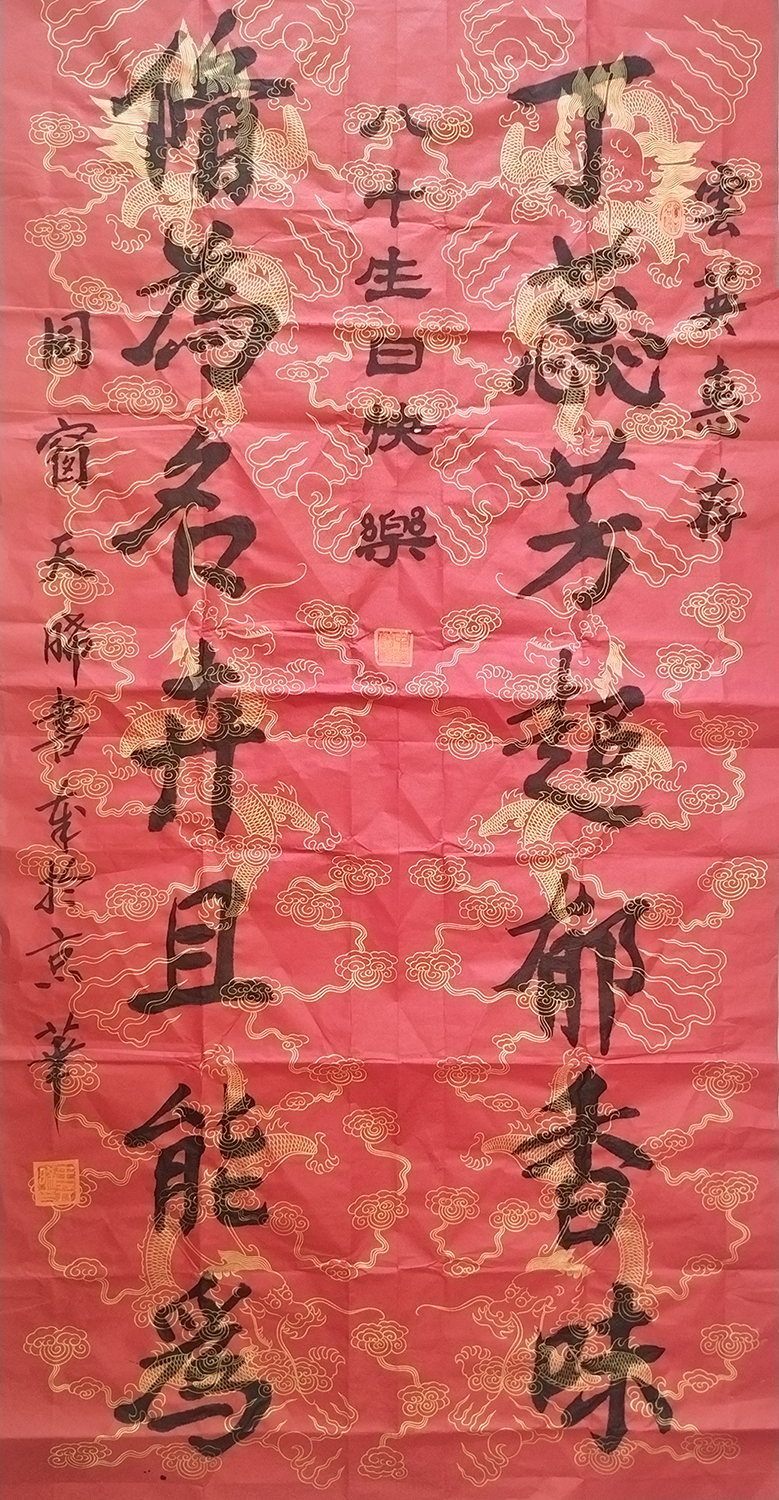 雲英惠存
丁蕊芳超郁香味
八十生日快樂
脩為名卉且能爲
同窗天晞書奉於京華